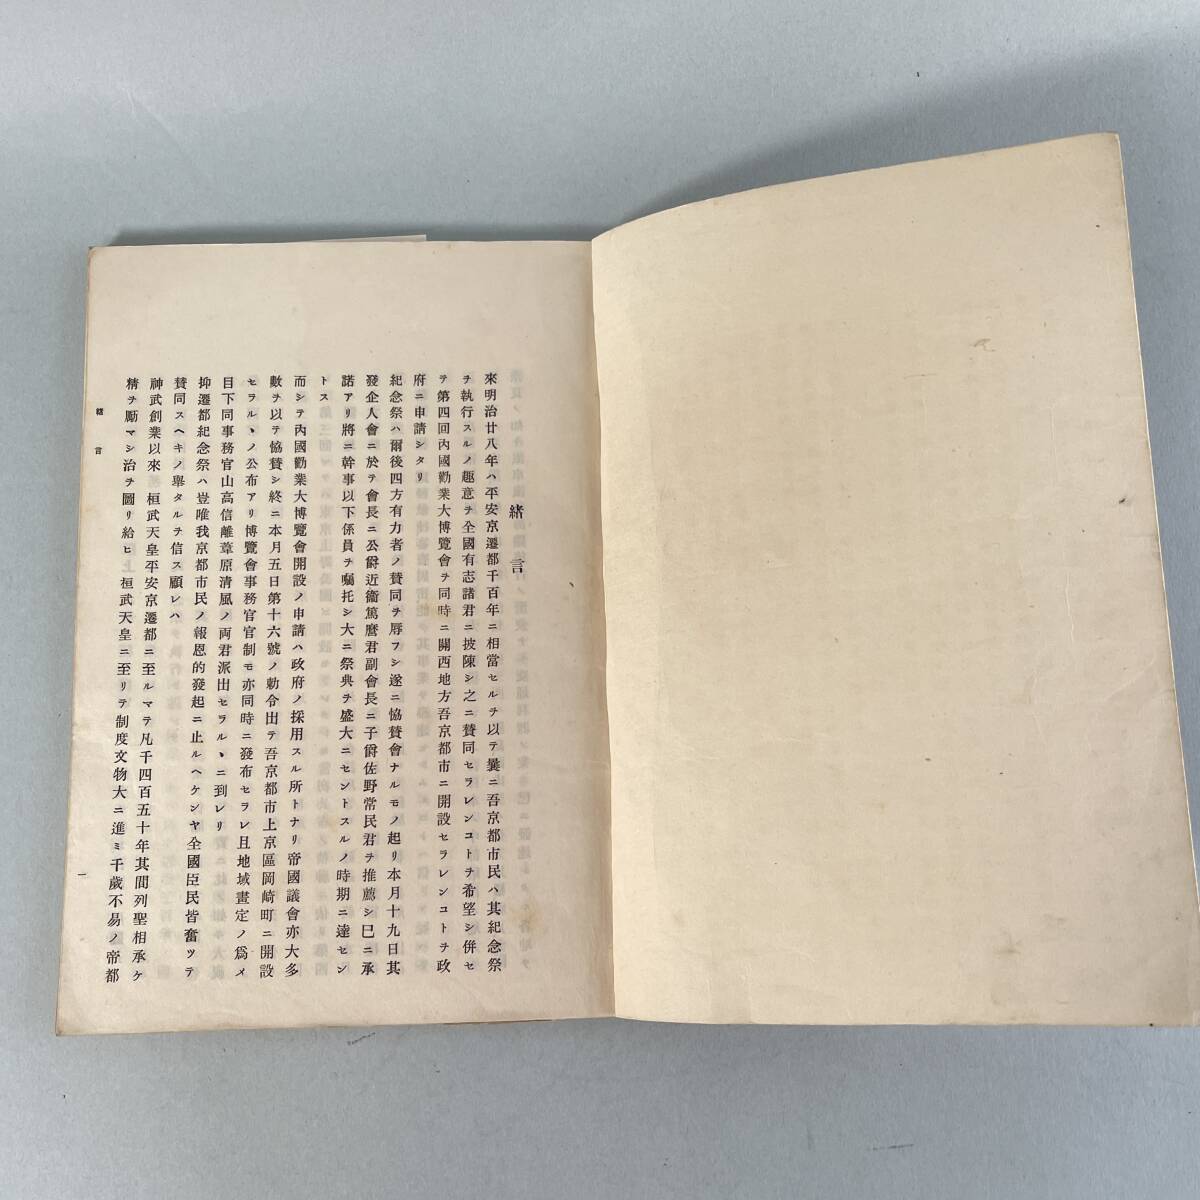 緒言
來明治廿八年ハ平安京遷都千百年ニ相當セルヲ以テ曩ニ吾京都市民ハ其紀念祭
ヲ執行スルノ趣意ヲ全國有志諸君ニ披陳シ之ニ賛同セラレンコトヲ希望シ併セ
テ第四回內國勸業大博覽會ヲ同時ニ關西地方吾京都市ニ開設セラレンコトヲ政
府ニ申請シタリ
紀念祭ハ爾後四方有力者ノ賛同ヲ辱フシ遂ニ協賛會ナルモノ起リ本月十九日其
發企人會ニ於テ會長ニ公爵近衞篤麿君副會長ニ子爵佐野常民君ヲ推薦シ巳ニ承
諾アリ將ニ幹事以下係員ヲ囑托シ大ニ祭典ヲ盛大ニセントスルノ時期ニ達セン
トス
而シテ內國勸業大博覽會開設ノ申請ハ政府ノ採用スル所トナリ帝國議會亦大多
數ヲ以テ協賛シ終ニ本月五日第十六號ノ勅令出テ吾京都市上京區岡崎町ニ開設
セラルヽノ公布アリ博覽會事務官官制モ亦同時ニ發布セラレ且地域畫定ノ爲メ
目下同事務官山高信離葦原清風ノ両君派出セラルヽニ到レリ
抑遷都紀念祭ハ豈唯我京都市民ノ報恩的發起ニ止ルヘケンヤ全國臣民皆奮ツテ
賛同スヘキノ擧タルヲ信ス顧レハ
神武創業以來 桓武天皇平安京遷都ニ至ルマテ凡千四百五十年其間列聖相承ケ
精ヲ勵マシ治ヲ圖リ給ヒ 桓武天皇ニ至リテ制度文物大ニ進ミ千歲不易ノ帝都
緒言
一